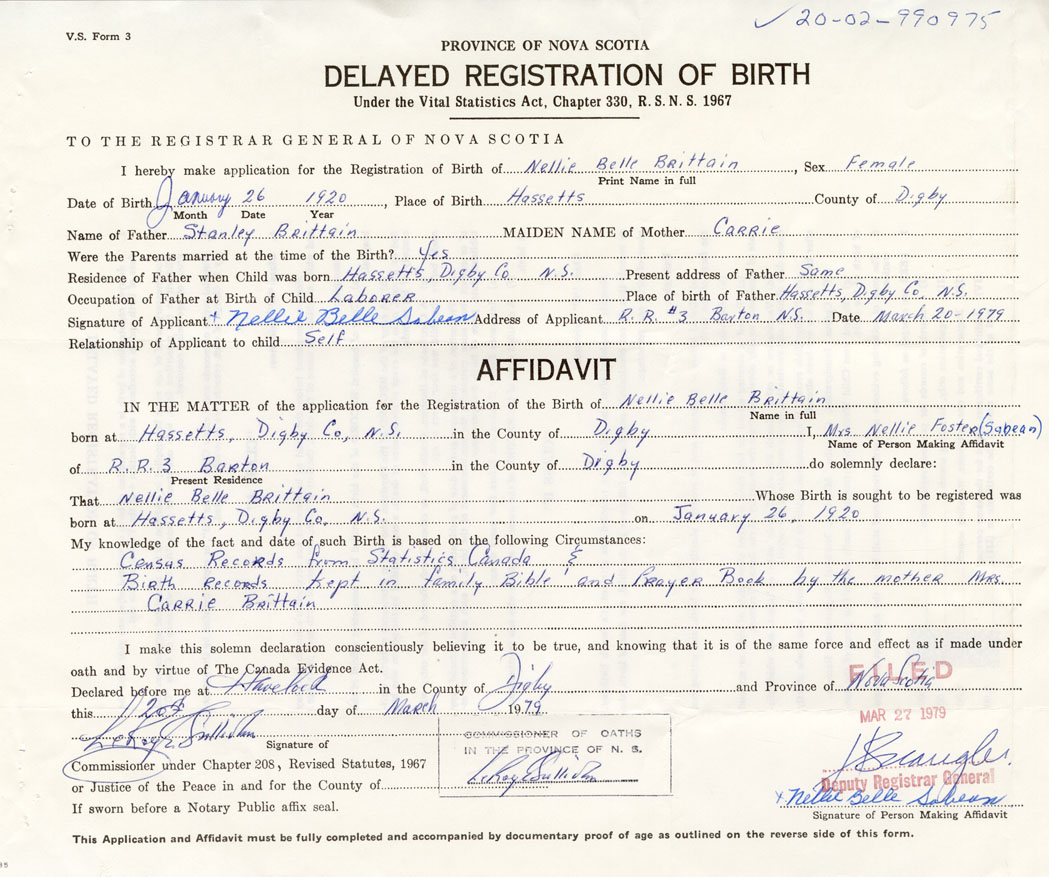 20-02-990975
V.S. Form 3
PROVINCE OF NOVA SCOTIA
DELAYED REGISTRATION OF BIRTH
Under the Vital Statistics Act, Chapter 330, R. S. N. S. 1967
TO THE REGISTRAR GENERAL OF NOVA SCOTIA
I hereby make application for the Registration of Birth of Nellie Belle Brittain, Sex Female
Print Name in full
Date of Birth January 26 1920, Place of Birth Hassetts County of Digby
Month Date Year
Name of Father Stanley Brittain MAIDEN NAME of Mother Carrie
Were the Parents married at the time of the Birth? Yes
Residence of Father when Child was born Hassetts, Digby Co N.S. Present address of Father Same
Occupation of Father at Birth of Child Laborer Place of birth of Father Hassetts, Digby Co, N.S.
Signature of Applicant x Nellie Belle Sabean Address of Applicant R.R. #3 Barton N.S. Date March 20-1979
Relationship of Applicant to child Self
AFFIDAVIT
IN THE MATTER of the application for the Registration of the Birth of Nellie Belle Brittain
Name in full
born at Hassetts, Digby Co, N.S. in the County of Digby I, Mrs Nellie Foster (Sabean)
Name of Person Making Affidavit
of R.R.3 Barton in the County of Digby do solemnly declare:
Present Residence
That Nellie Belle Brittain Whose Birth is sought to be registered was
born at Hassetts, Digby Co, N.S. on January 26, 1920
My knowledge of the fact and date of such Birth is based on the following Circumstances:
Census Records from Statistics Canada &
Birth records kept in family Bible and Prayer Book by the mother Mrs.
Carrie Brittain
I make this solemn declaration conscientiously believing it to be true, and knowing that it is of the same force and effect as if made under
oath and by virtue of The Canada Evidence Act.
FILED
Declared before me at Havelock in the County of Digby and Province of Nova Scotia
this 20th day of March 1979
MAR 27 1979
LeRoy E Sullivan
Signature of
COMMISSIONER OF OATHS
IN THE PROVINCE OF N. S.
LeRoy E Sullivan
Commissioner under Chapter 208, Revised Statutes, 1967
or Justice of the Peace in and for the County of
Deputy Registrar General
x Nellie Belle Sabean
If sworn before a Notary Public affix seal.
Signature of Person Making Affidavit
This Application and Affidavit must be fully completed and accompanied by documentary proof of age as outlined on the reverse side of this form.